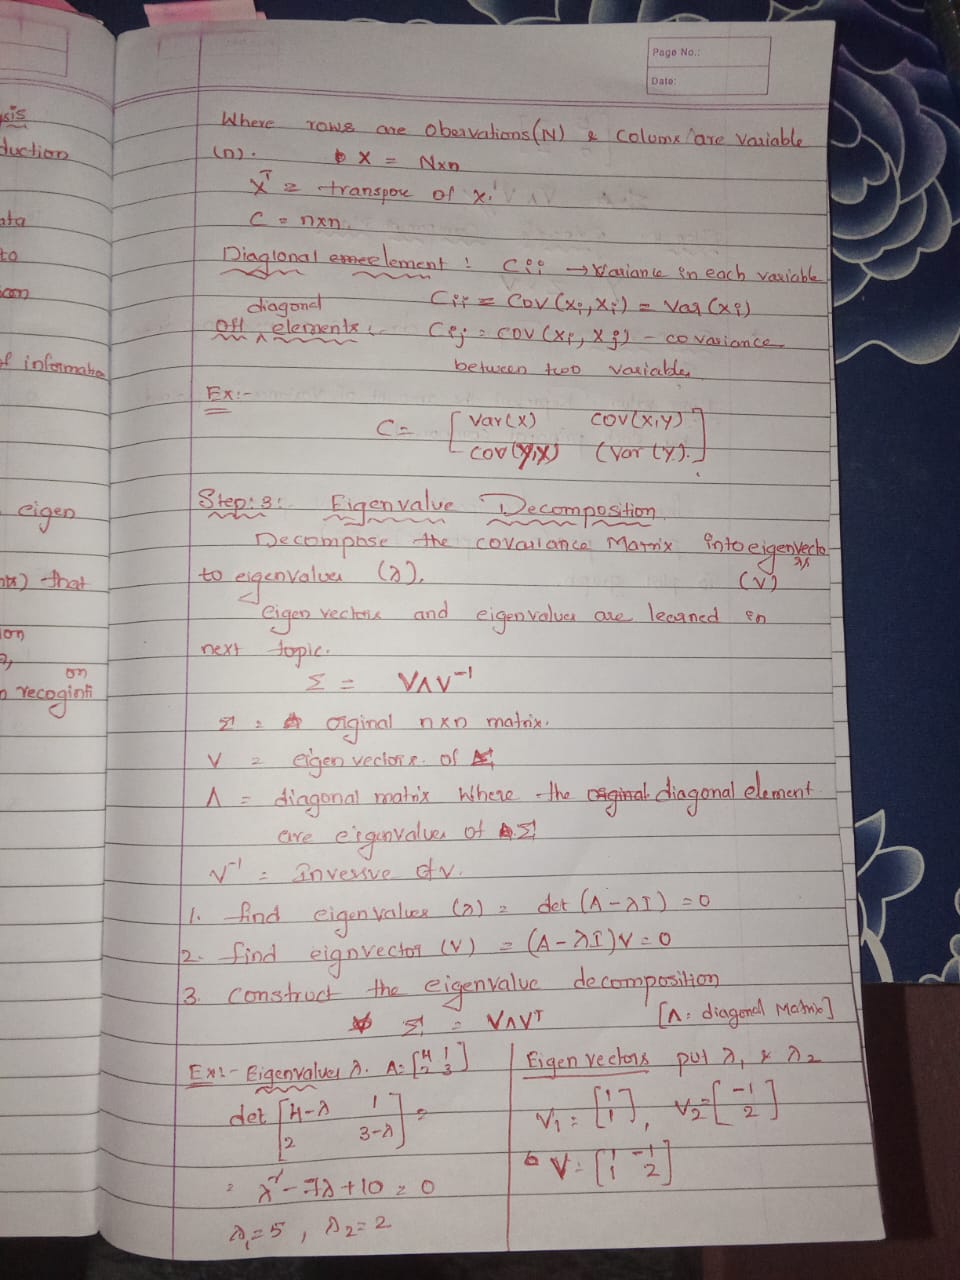 sis
duction
ata
to
ion
f informate
eigen
that
ion
on
recoginti
Page No.:
Date:
Where rows are Obervations (N) & Columx are Variable
(n). X = Nxn
X^T = transpore of x.
C = nxn.
Diagional element : Cii → Variance in each variable
Cii = Cov (xi, xi) = Var (xi)
Off diagonal elements :- Cij = cov (xi, xj) - covariance
between two variables
Ex:-
C = [ Var(x) cov(x,y)
cov(y,x) (Var (y). ]
Step: 3: Eigenvalue Decomposition
Decompose the covariance Matrix into eigenvectors
to eigenvalues (λ). (V)
eigen vectors and eigenvalues are learned in
next topic.
Σ = VΛV^-1
Σ = original nxn matrix.
V = eigen vectors of Σ
Λ = diagonal matrix Where the diagonal element
are eigenvalues of Σ
V^-1 = Inversive of V.
1. find eigenvalues (λ) = det (A-λI) = 0
2. find eignvector (V) = (A-λI)V = 0
3. construct the eigenvalue decomposition
Σ = VΛV^T [Λ = diagonal Matrix]
Ex:- Eigenvalues λ. A = [4 1
2 3]
det [4-λ 1
2 3-λ] =
= λ²-7λ+10 = 0
λ₁=5, λ₂=2
Eigen vectors put λ₁ & λ₂
V₁ = [1
1], V₂ = [-1
2]
V = [1 -1
1 2]